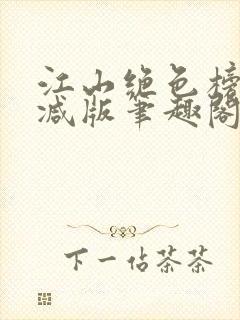 江山绝色榜
减版笔趣阁
下一佔茶茶